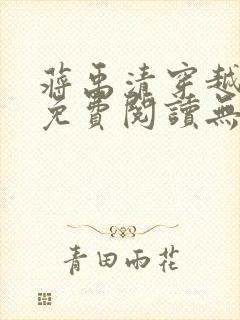 蔣禹清穿越
免費閱讀無
青田雨花